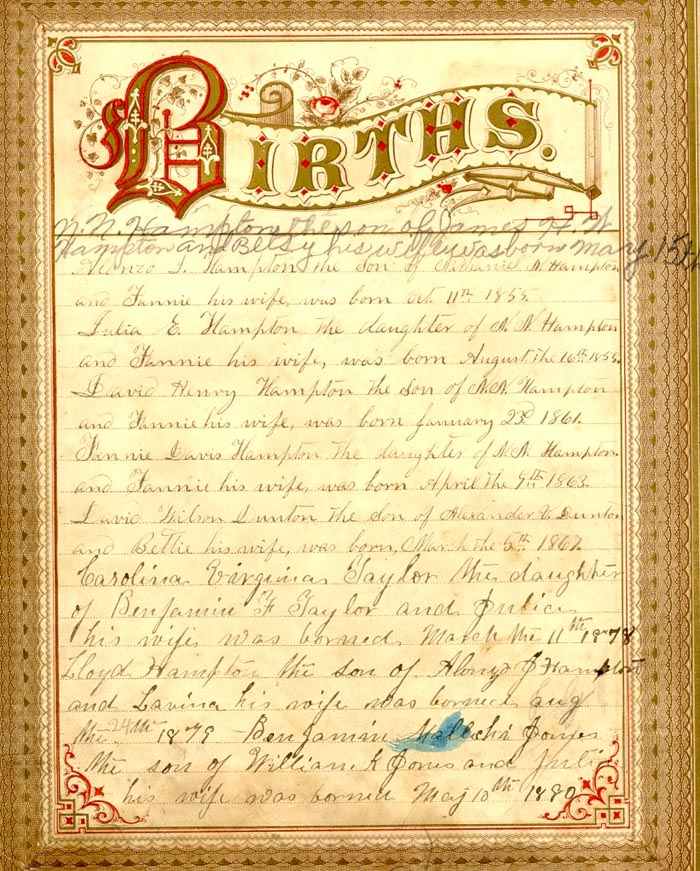 BIRTHS.
N. N. Hampton, the son of James H. N
Hampton and Betsy his wife was born May 15th
Alonzo J. Hampton the Son of Nathaniel N. Hampton
and Fannie his wife, was born Oct. 11th 1855.
Julia E. Hampton the daughter of N. N. Hampton
and Fannie his wife, was born August the 16th
David Henry Hampton the Son of N. N. Hampton
and Fannie his wife, was born January 23d 1861.
Fannie Davis Hampton the daughter of N. N. Hampton.
and Fannie his wife, was born April the 1863.
David Wilson Dunton the Son of Alexander Dunton
and Bettie his wife, was born, March the 5th 1867.
Carolina Virginia Taylor the daughter
of Benjamin F Taylor and Julice
his wife was borned March the 11th 1878
Lloyd Hampton the son of Alonzo J Hampton
and Lavina his wife was borned aug
the 24th 1879 Benjamin Jones
the son of William K Jones and Julie
his wife was borned May 10th 1880